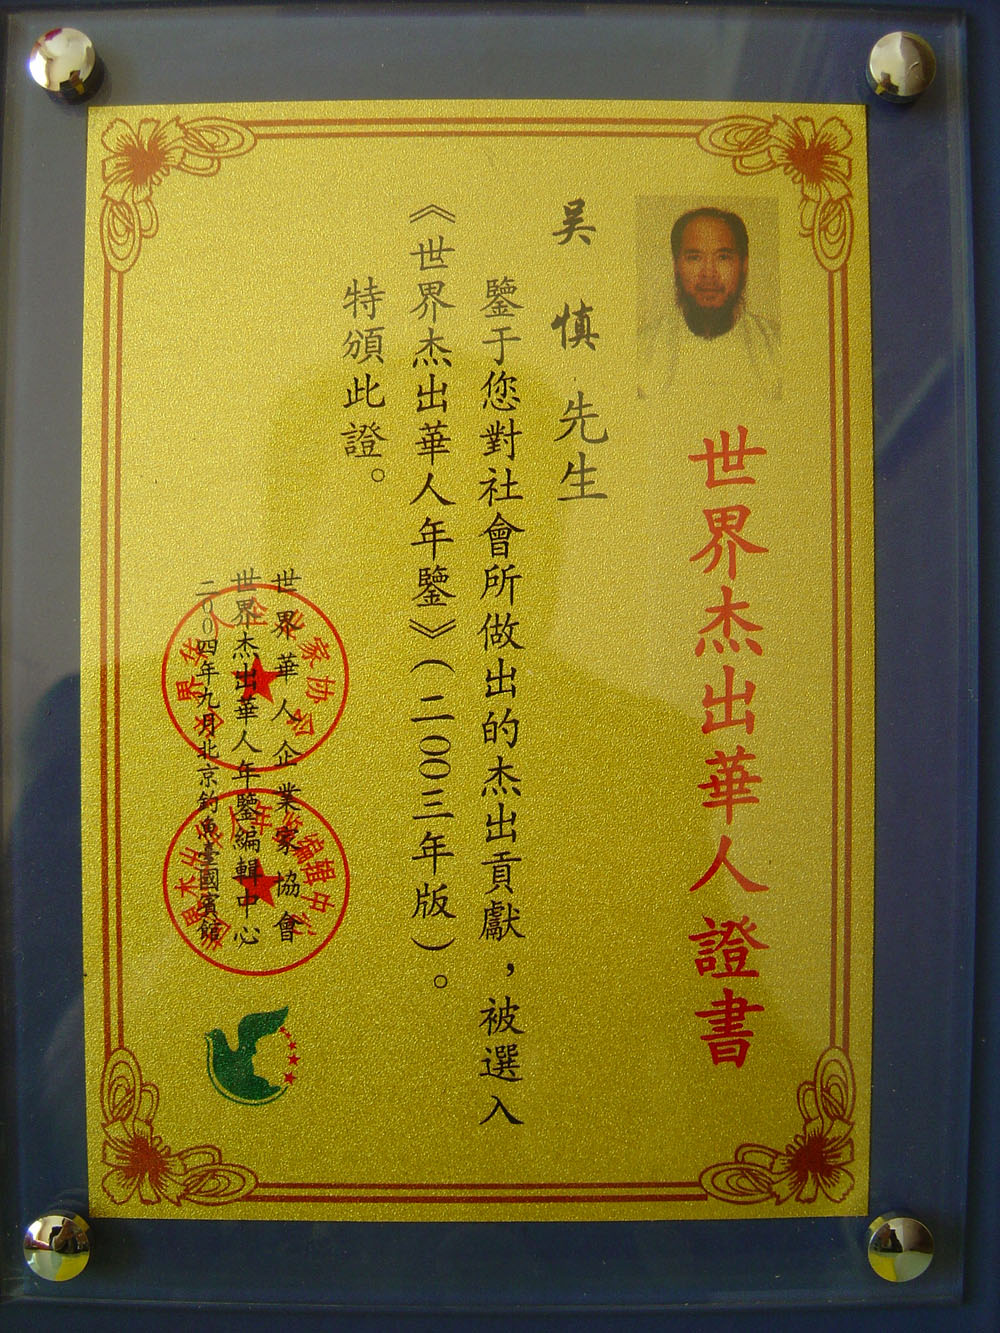 世界杰出華人證書
吴慎先生
鑒于您對社會所做出的杰出貢獻，被選入
《世界杰出華人年鑒》（二〇〇三年版）。
特頒此證。
世界華人企業家協會
世界杰出華人年鑒編輯中心
二〇〇四年九月北京釣魚臺國賓館